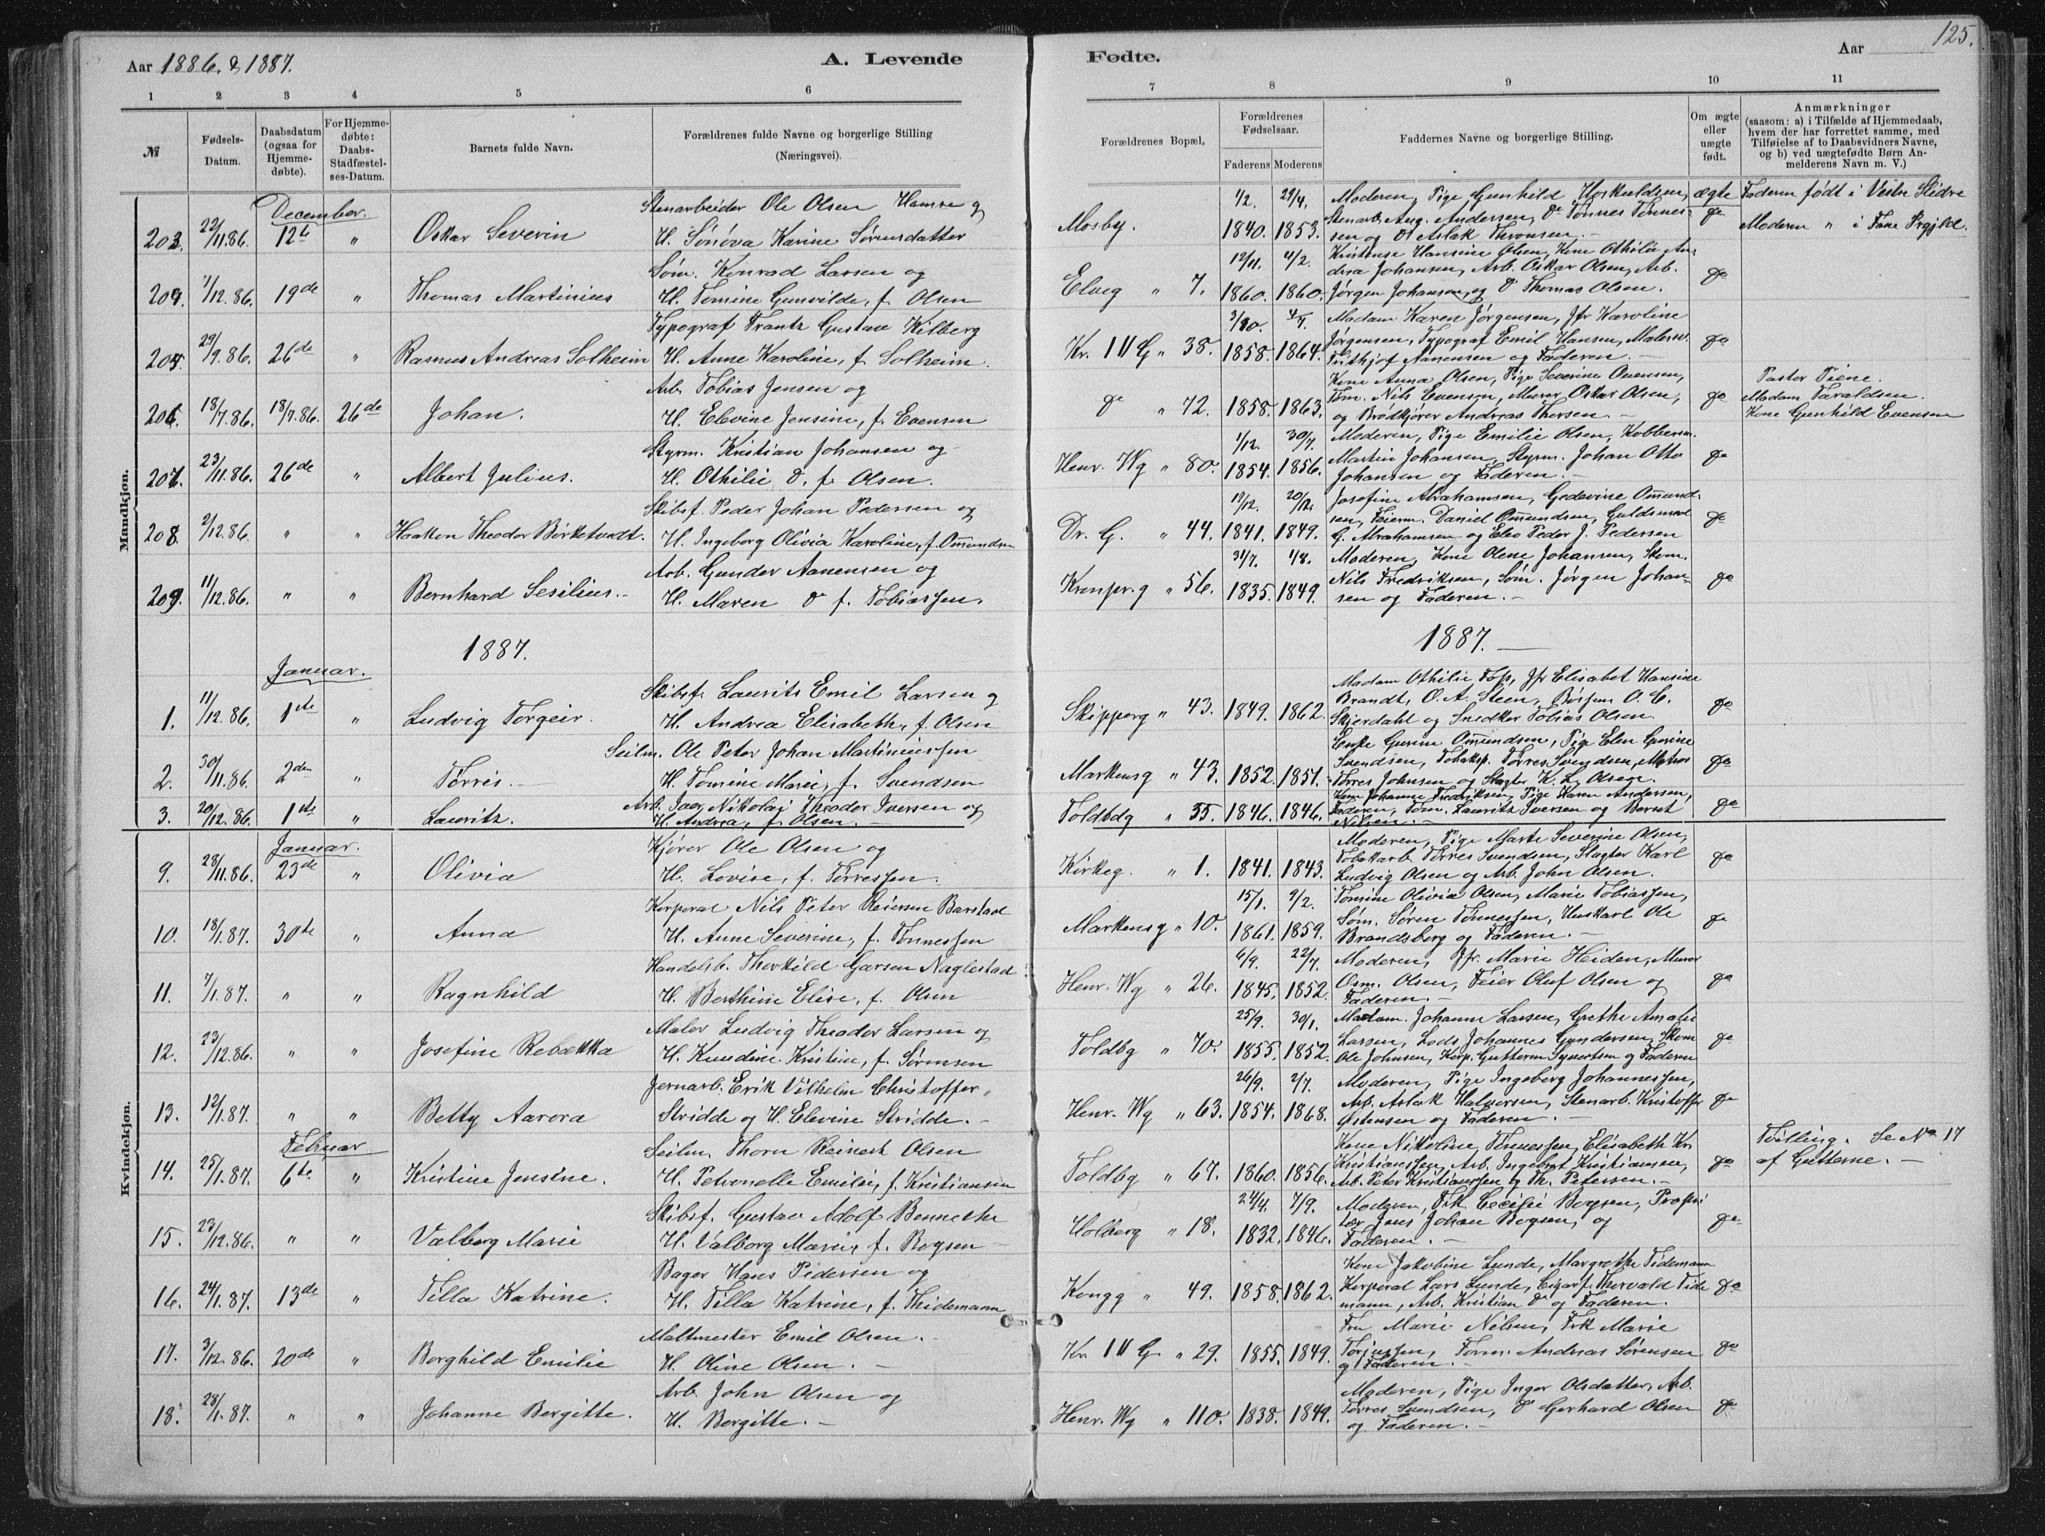 Aar 1886. & 1887.
A. Levende
Fødte.
Aar
125.
1 2 3 4 5 6
7 8 9 10 11
№
Fødsels-Datum.
Daabsdatum (ogsaa for Hjemmedøbte).
For Hjemmedøbte: Daabs-Stadfæstelses-Datum.
Barnets fulde Navn.
Forældrenes fulde Navne og borgerlige Stilling (Næringsvei).
Forældrenes Bopæl.
Forældrenes Fødselsaar.
Faderens Moderens
Faddernes Navne og borgerlige Stilling.
Om ægte eller uægte født.
Anmærkninger
(saasom: a) i Tilfælde af Hjemmedaab, hvem der har forrettet samme, med Tilføielse af to Daabsvidners Navne, og b) ved uægtefødte Børn Anmelderens Navn m. V.)
Mandkjøn.
December.
203. 22/11.86. 12te " Oskar Severin
Stenarbeider Ole Olsen Hamre og
H. Sønøva Karine Sørensdatter
Mosby. 1/2. 1840. 29/4. 1853.
Moderen, Pige Gunhild Hoskuldsen,
Stenarb. Aug. Andersen, Do Tønnes Tønnes-
sen og Do Aslak Thronsen.
ægte do
Faderen født i Vestre Slidre
Moderen " i Fane Prgjld.
204. 1/12.86. 19de " Thomas Martinius
Søm. Konrad Larsen og
H. Tomine Gunvilde, f. Olsen
Elveg " 7. 12/11. 1860. 4/2. 1860.
Kristense Hansine Olsen, Kone Othilie An-
drea Johansen, Arb. Oskar Olsen, Arb.
Jørgen Johansen, og Do Thomas Olsen.
do
205. 29/9.86. 26de " Rasmus Andreas Solheim
Typograf Frantz Gustav Kilberg
H. Anne Karoline, f. Solheim.
Kr. IV G " 38. 1858. 1864.
Madam Karen Jørgensen, Jfr Karoline
Jørgensen, Typograf Emil Hansen, Malersv.
Frithjof Aanensen og Faderen.
do
206. 18/7.86. 18/7.86. 26de Johan.
Arb. Tobias Jensen og
H. Elevine Jensine, f. Evensen
do " 72. 1858. 1863.
Kone Anna Olsen, Pige Severine Evensen,
Tøm. Nils Evensen, Murer Oskar Olsen,
og Brødkjører Andreas Thersen.
do
Pastor Piene.
Madam Taraldsen.
Kone Gunhild Evensen
207. 23/11.86. 26de " Albert Julius.
Styrm. Kristian Johansen og
H. Othilie D. f. Olsen.
Henr. Wg " 80. 1/12. 1854. 30/7. 1856.
Moderen, Pige Emilie Olsen, Kobbersm.
Martin Johansen, Styrm. Johan Otto
Johansen og Faderen.
do
208. 2/12.86. " " Haakon Theodor Birketvedt.
Skibsf. Peder Johan Pedersen og
H. Ingeborg Olivia Karoline, f. Omundsen
Dr. G. " 44. 19/12. 1841. 20/12. 1849.
Josefine Abrahamsen, Gedevine Omund-
sen, Feierm. Daniel Omundsen, Guldsmed
G. Abrahamsen og Elev Peder J. Pedersen
do
209. 11/12.86. " " Bernhard Sesilius.
Arb. Gunder Aanensen og
H. Maren Do f. Tobiassen.
Kronpr.g " 56. 31/7. 1835. 1/8. 1849.
Moderen, Kone Olene Johansen, Skom.
Nils Fredriksen, Søm. Jørgen Johan-
sen og Faderen.
do
1887.
1887.
Januar.
1. 11/12.86. 1ste " Ludvig Torgeir.
Skibsf. Laurits Emil Larsen og
H. Andrea Elisabeth, f. Olsen
Skipperg " 43. 1849. 1862.
Madam Othilie Foss, Jfr Elisabet Hansine
Brandt, O. A. Steen, Bøssem. O. C.
Skjerdahl og Snedker Tobias Olsen
do
2. 30/11.86. 2den " Tørris.
Seilm. Ole Peter Johan Martiniussen
H. Tomine Marie, f. Svendsen
Markensg " 43. 1852. 1851.
Enke Gurine Omundsen, Pige Elen Gurine
Svendsen, Tobaksp. Tørres Svendsen, Matros
Tørres Johnsen og Slagter K. L. Olsen.
do
3. 20/12.86. 1ste " Lauritz.
Arb. Jacob Nikolai Theodor Iversen og
H. Andrea, f. Olsen.
Toldbdg " 55. 1846. 1846.
Kone Johanne Fredriksen, Pige Karen Andersen,
Faderen, Tøm. Lauritz Iversen og Bernt
Nilsen.
do
Kvindekjøn.
Januar.
9. 28/11.86. 23de " Olivia
Kjører Ole Olsen og
H. Lovise, f. Tørressen.
Kirkeg. " 1. 1841. 1843.
Moderen, Pige Marte Severine Olsen,
Tobakarb. Tørres Svendsen, Slagter Karl
Ludvig Olsen og Arb. John Olsen.
do
10. 18/1.87. 30te " Anna
Korporal Nils Peter Reiersen Barstad
H. Anne Severine, f. Tønnessen
Markensg " 10. 15/1. 1861. 9/2. 1859.
Tomine Olivia Olsen, Marie Tobiassen,
Søm. Søren Tønnessen, Huskarl Ole
Brandsberg og Faderen.
do
11. 7/1.87. " " Ragnhild
Handelsb. Thorkild Garsen Naglestad
H. Berthine Elise, f. Olsen
Henr. Wg " 26. 6/9. 1845. 22/7. 1852.
Moderen, Jfr. Marie Heiden, Murer
Osm. Olsen, Feier Oluf Olsen og
Faderen.
do
12. 23/12.86. " " Josefine Rebækka
Maler Ludvig Theodor Larsen og
H. Kundine Kristine, f. Sørensen
Toldbg " 70. 25/9. 1855. 30/1. 1852.
Madam. Johanne Larsen, Grethe Amalie
Larsen, Lods Johannes Gundersen, Skom
Ole Johnsen, Korp. Guttorm Syvertsen og Faderen
do
13. 12/1.87. " " Betty Aarora
Jernarb. Erik Vilhelm Christoffer
Stridde og H. Elevine Stridde.
Henr. Wg " 63. 26/9. 1854. 2/7. 1868.
Moderen, Pige Ingeborg Johannessen,
Arb. Aslak Halvorsen, Stenarb. Kristoffer
Østensen og Faderen.
do
Februar
14. 25/1.87. 6te " Kristine Jensine.
Seilm. Thorn Reinert Olsen
H. Petronelle Emilie, f. Kristiansen
Toldbg " 67. 1860. 1856.
Kone Nikoline Tønnessen, Elisabeth Kr.
Kristianssen, Arb. Ingebret Kristiansen,
Arb. Peter Kristianssen og Th. Petersen.
do
Tvilling. Se No 17
af Gutterne.
15. 23/12.86. " " Valborg Marie
Skibsf. Gustav Adolf Bennetche
H. Valborg Marie, f. Bogsen
Holberg " 18. 24/4. 1832. 7/9. 1846.
Moderen, Frk Cecilie Bogsen, Propri
tær Jens Johan Bogsen, og
Faderen.
do
16. 24/1.87. 13de " Tilla Katrine.
Bager Hans Pedersen og
H. Tilla Katrine, f. Thidemann
Kongg " 49. 1858. 1862.
Kone Jakobine Lunde, Margrethe Tidemann
Korporal Lars Lunde, Cigarf. Thorvald Tide
mann, Arb. Kristian Do og Faderen.
do
17. 3/12.86. 20de " Borghild Emilie
Maltmester Emil Olsen.
H. Oline Olsen.
Kr. IV G " 29. 1855. 1849.
Fru Marie Nilsen, Frk Marie
Torjussen, Tørm. Andreas Sørensen
og Faderen.
do
18. 28/1.87. " " Johanne Bergitte.
Arb. John Olsen og
H. Bergitte.
Henr. Wg " 110. 1838. 1849.
Moderen, Pige Inger Olsdatter, Arb.
Tørres Svendsen, Do Gerhard Olsen
og Faderen.
do